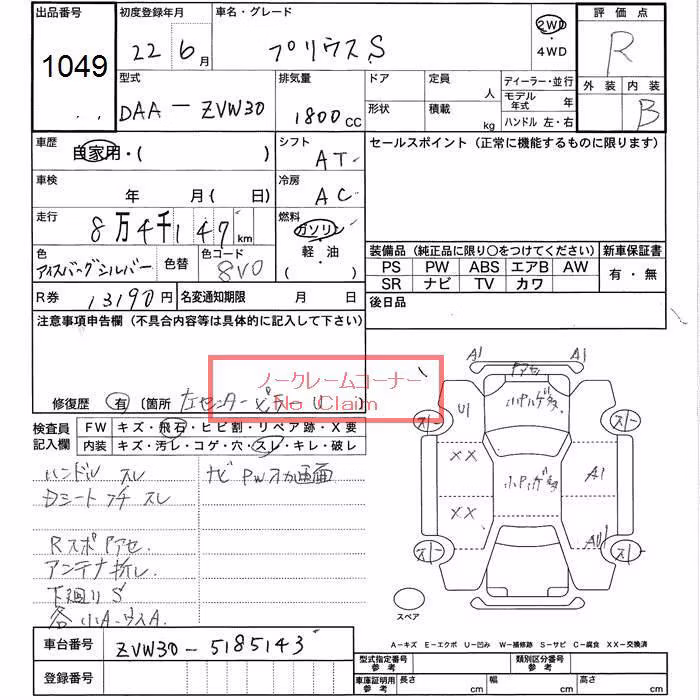 出品番号 初度登録年月 車名・グレード 評価点
1049 22 6月 プリウスS 2WD・4WD R
外装 内装
B
型式 排気量 ドア 定員 人 ディーラー・並行
DAA-ZVW30 1800cc 形状 積載 kg モデル年式 年
ハンドル 左・右
車歴 自家用・( ) シフト AT セールスポイント (正常に機能するものに限ります)
車検 年 月( 日) 冷房 AC
走行 8万4千147km 燃料 ガソリン 軽・油 ( )
色 アイスバーグシルバー 色替 色コード 8V0
装備品 (純正品に限り○をつけてください) 新車保証書
PS PW ABS エアB AW 有・無
SR ナビ TV カワ
R券 13190円 名変通知期限 月 日 後日品
注意事項申告欄 (不具合内容等は具体的に記入して下さい)
ノークレームコーナー
No Claim
修復歴 有 〔箇所 左センターピラー
検査員記入欄 FW キズ・飛石・ヒビ割・リペア跡・X要
内装 キズ・汚レ・コゲ・穴・スレ・キレ・破レ
ハンドル スレ ナビ PWオカ画面
Dシート フチ スレ
RスポPアセ
アンテナ折レ
下廻りS
各小A・ウスA
A1 A1
Pアセ
U1 小Pハゲ多
スレ スレ
XX
小Pハゲ多 A1
XX
AU1
スレ スレ
スペア
A-キズ E-エクボ U-凹み W-補修跡 S-サビ C-腐食 XX-交換済
車台番号 ZVW30-5185143
登録番号
型式指定番号 参考 類別区分番号 参考
車庫証明用 参考 長さ cm 幅 cm 高さ cm